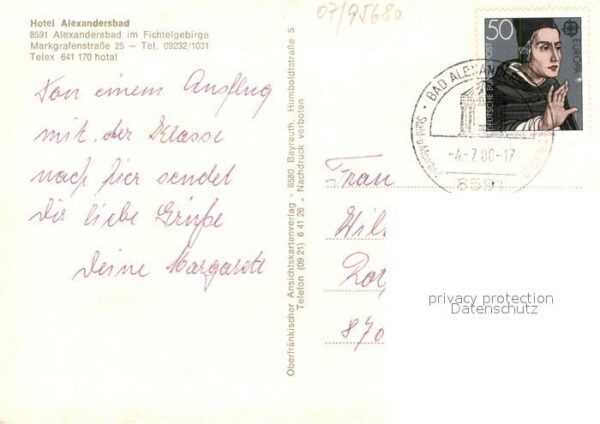 Hotel Alexandersbad
8591 Alexandersbad im Fichtelgebirge
Markgrafenstraße 25 – Tel. 09232/1031
Telex 641 170 hotal
07/95680
Von einem Ausflug
mit der Klasse
nach hier sendet
Dir liebe Grüße
Deine Margarete
Oberfränkischer Ansichtskartenverlag - 8580 Bayreuth, Humboldtstraße 5
Telefon (09 21) 6 41 26 - Nachdruck verboten
50
EUROPA
DEUTSCHE BUNDESPOST
BAD ALEXANDERS
-4.-7.80-17
8591
Frau
Wil
870
privacy protection
Datenschutz